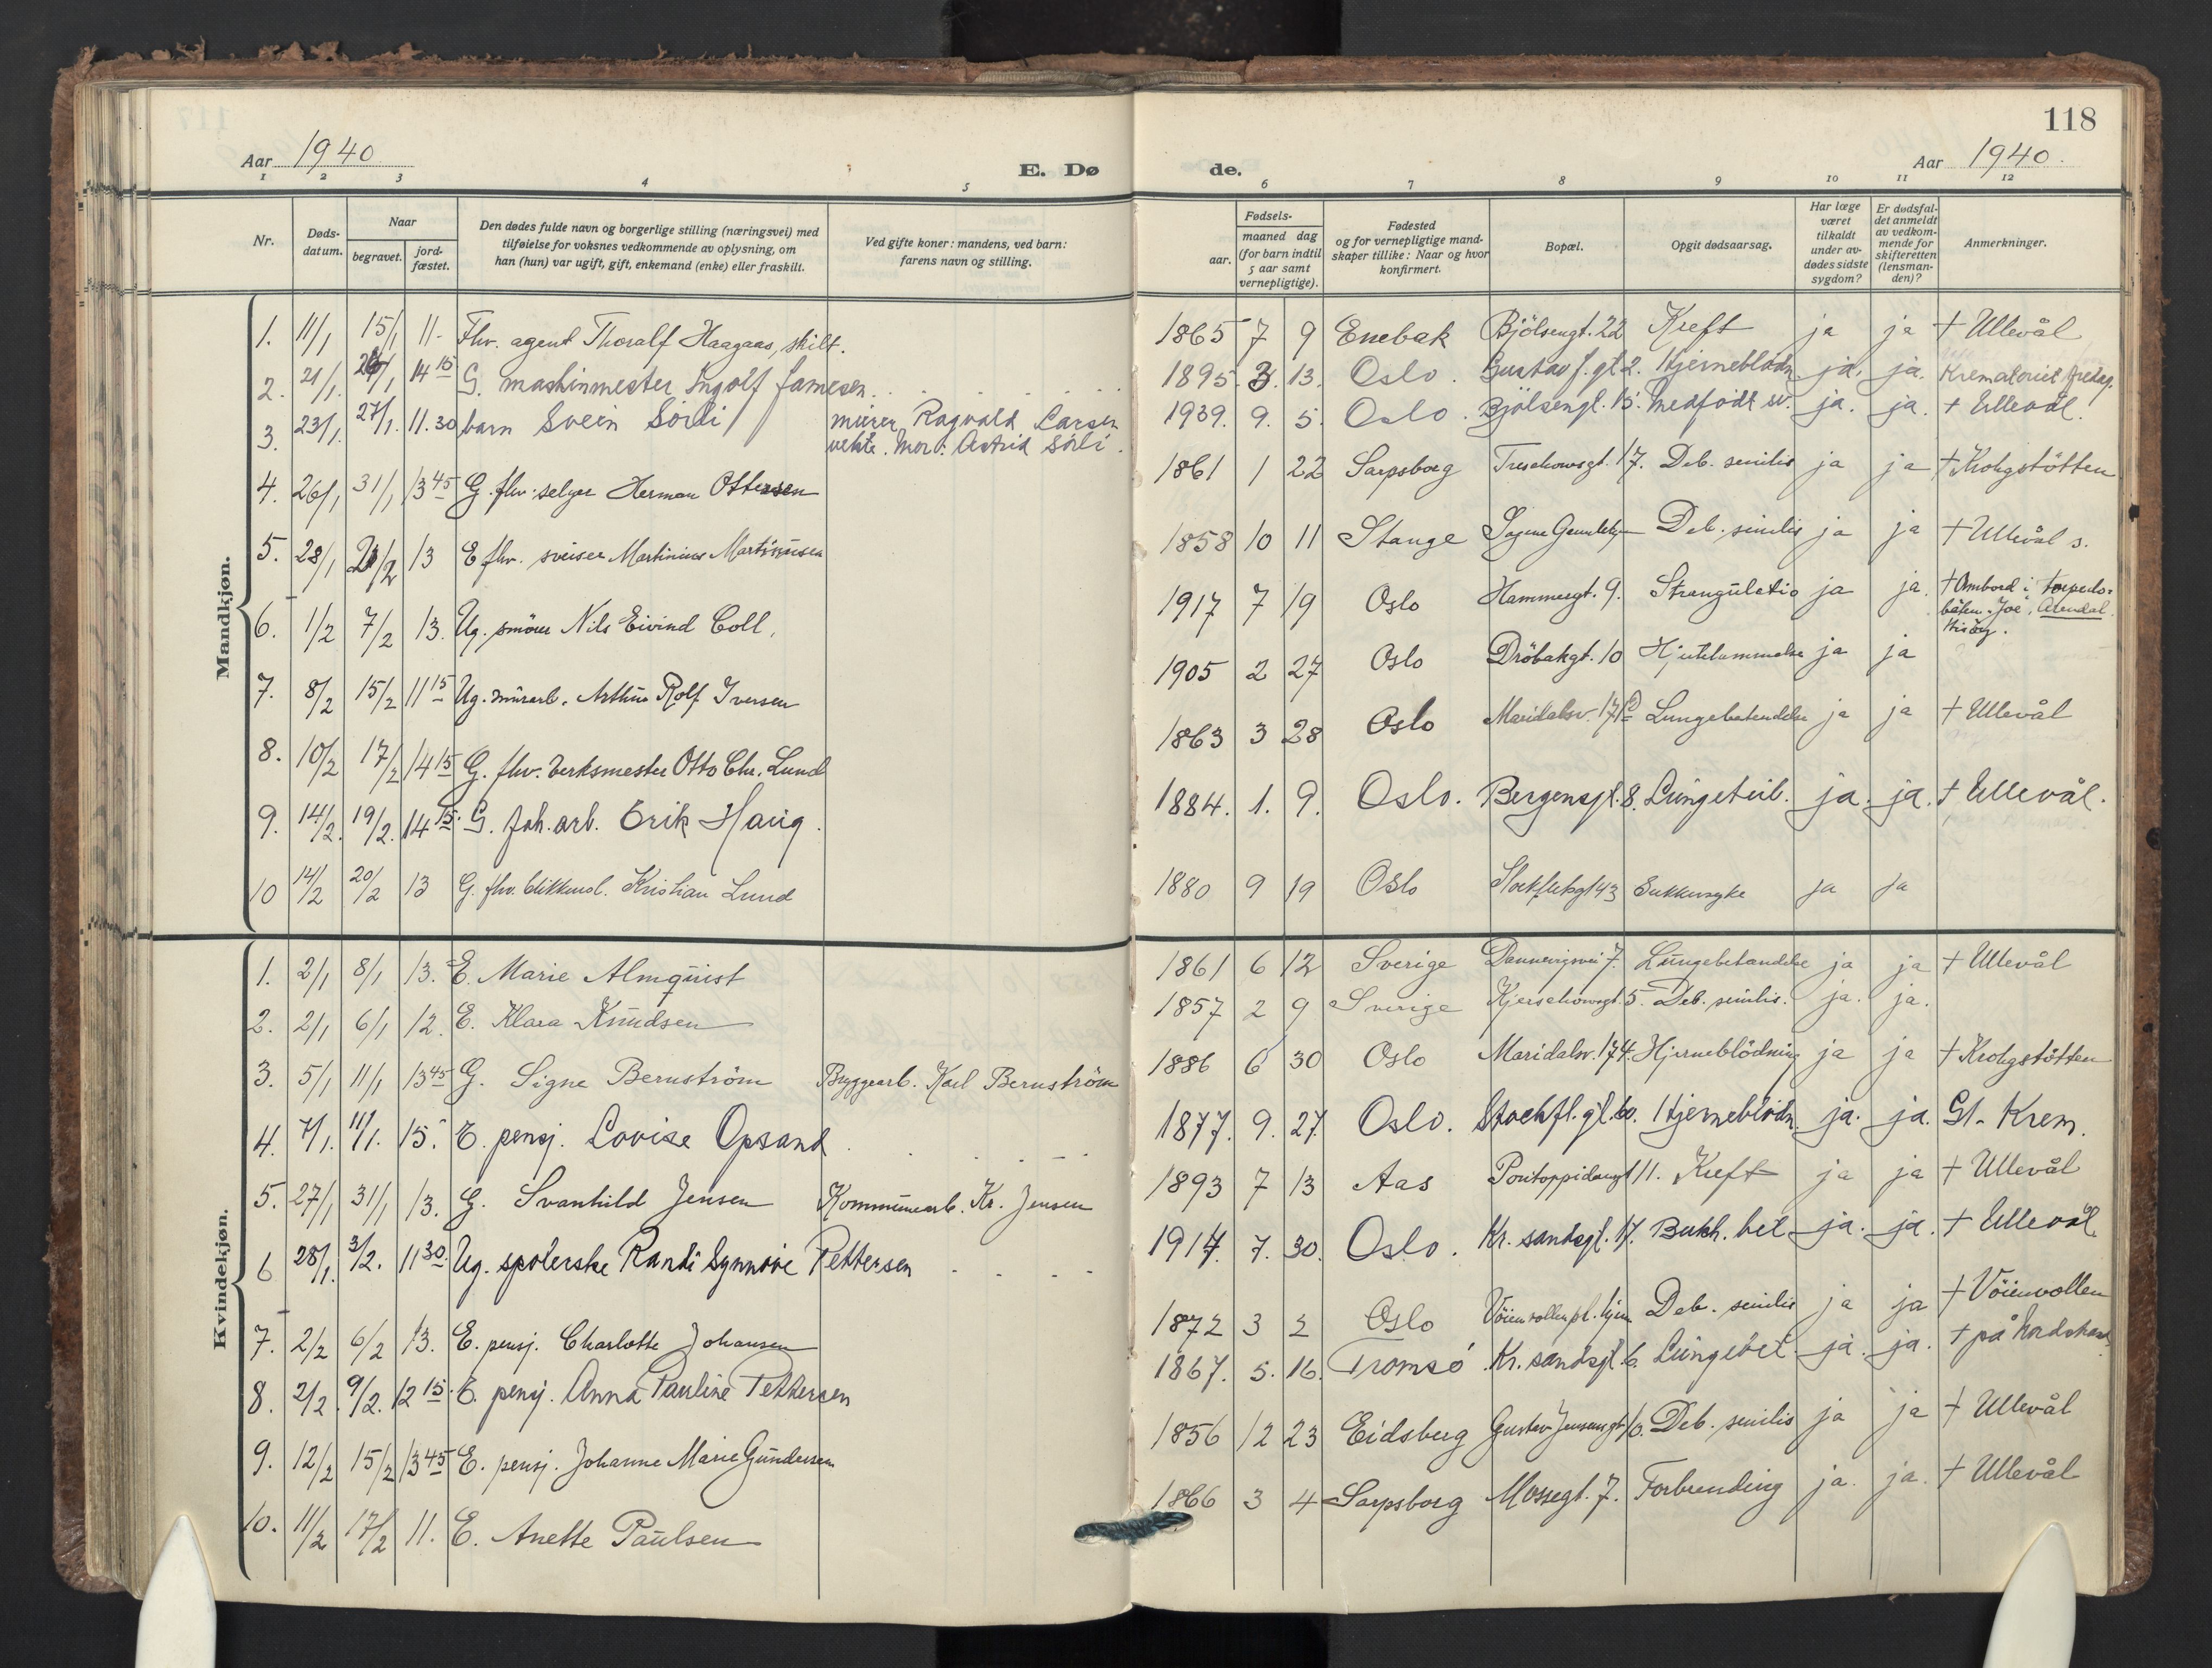 118
Aar 1940
E. Dø
de.
Aar 1940.
1 2 3 4 5 6 7 8 9 10 11 12
Nr.
Døds-
datum.
Naar
begravet.
jord-
fæstet.
Den dødes fulde navn og borgerlige stilling (næringsvei) med
tilføielse for voksnes vedkommende av oplysning, om
han (hun) var ugift, gift, enkemand (enke) eller fraskilt.
Ved gifte koner: mandens, ved barn:
farens navn og stilling.
Fødsels-
aar.
maaned dag
(for barn indtil
5 aar samt
vernepligtige).
Fødested
og for vernepligtige mand-
skaper tillike: Naar og hvor
konfirmert.
Bopæl.
Opgit dødsaarsag.
Har læge
været
tilkaldt
under av-
dødes sidste
sygdom?
Er dødsfal-
det anmeldt
av vedkom-
mende for
skifteretten
(lensman-
den)?
Anmerkninger.
Mandkjøn.
1. 11/1 15/1 11- Fhv. agent Thoralf Haagaas, skilt. 1865 7 9 Enebak Bjölsengt. 22 Kreft ja ja † Ullevål
2. 21/1 14 15 G. maskinmester Ingolf Jamesen 1895. 3. 13. Oslo. Gustav J. gt 2. Hjerneblödn ja. ja. Krematoriet
3. 23/1. 27/1. 11.30 barn Svein Sörli murer Ragvald Larsen 1939. 9. 5. Oslo. Bjölsengt. 15. Medfödt sv. ja. ja. † Ullevål.
vekte. Mor: Astrid Sörli.
4. 26/1 31/1 13 45 G. fhv. selger Herman Ottersen 1861 1 22 Sarpsborg Treschowsgt. 17. Deb. senilis ja ja † Krohgstötten
5. 28/1 13 E fhv. sveiser Martinius Martinusen 1858 10 11 Stange Sagene Gamlehj Deb. senilis ja ja † Ullevål s.
6. 1/2 7/2 13. Ug. smörer Nils Eivind Coll, 1917 7 19 Oslo Hammergt. 9. Strangulatio ja ja. † Ombord i torpedo-
båten "Joe", Arendal.
Hisöy.
7. 8/2 15/2 11 15 Ug. murarb. Arthur Rolf Iversen 1905 2 27 Oslo Dröbakgt. 10 Hjertelammelse ja ja
8. 10/2 17/2 14 15 G. fhv. verksmester Otto Chr. Lund 1863 3 28 Oslo Maridalsv. Lungebetendelse ja ja † Ullevål
9. 14/2. 19/2. 14 15. G. fab. arb. Erik Haug. 1884. 1. 9. Oslo. Bergensgt. 8. Lungetub. ja. ja. † Ullevål.
10 14/2 20/2 13 G. fhv. blikkensl. Kristian Lund 1880 9 19 Oslo Stockfletsgt 43 Sukkersyke ja ja
Kvindekjøn.
1. 2/1 8/1 13. E. Marie Almquist 1861 6 12 Sverige Dannevigsvei 7. Lungebetendelse ja ja † Ullevål
2. 2/1 6/1 12. E. Klara Knudsen 1857 2 9 Sverige Kjerschowsgt. 5. Deb. senilis. ja. ja.
3. 5/1 11/1 13 45 G. Signe Bernström Bryggearb. Karl Bernström 1886 6 30 Oslo Maridalsv. 174. Hjerneblödning ja ja † Krohgstötten
4. 7/1. 11/1. 15. E. pensj. Lovise Opsand 1877. 9. 27. Oslo. Stockfl. gt. 60. Hjerneblödn. ja. ja. Gl. Krem.
5. 27/1 31/1 13. G. Svanhild Jensen Kommunearb. Kr. Jensen 1893 7 13 Aas Pontoppidansgt 11. Kreft ja ja † Ullevål
6 28/1. 3/2. 11 30. Ug. spolerske Randi Synnöve Pettersen 1914. 7. 30. Oslo. Kr. sandsgt. 17. Bukh. bet ja. ja. † Ullevål.
7. 2/2 6/2 13. E. pensj. Charlotte Johansen 1872 3 2 Oslo Vöienvollen pl. hjem Deb. senilis ja ja † Vöienvollen
8. 2/2. 9/2. 12 15. E. pensj. Anna Pauline Pettersen 1867. 5. 16. Tromsö Kr. sandsgt. 6 Lungebet. ja. ja. † på
9. 12/2 15/2 13 45 E. pensj. Johanne Marie Gundersen 1856 12 23 Eidsberg Gustav Jensensgt. 10. Deb. senilis ja ja † Ullevål
10. 11/2 17/2 11. E. Anette Paulsen 1866 3 4 Sarpsborg Mossegt. 7. Forbrending ja. ja. † Ullevål